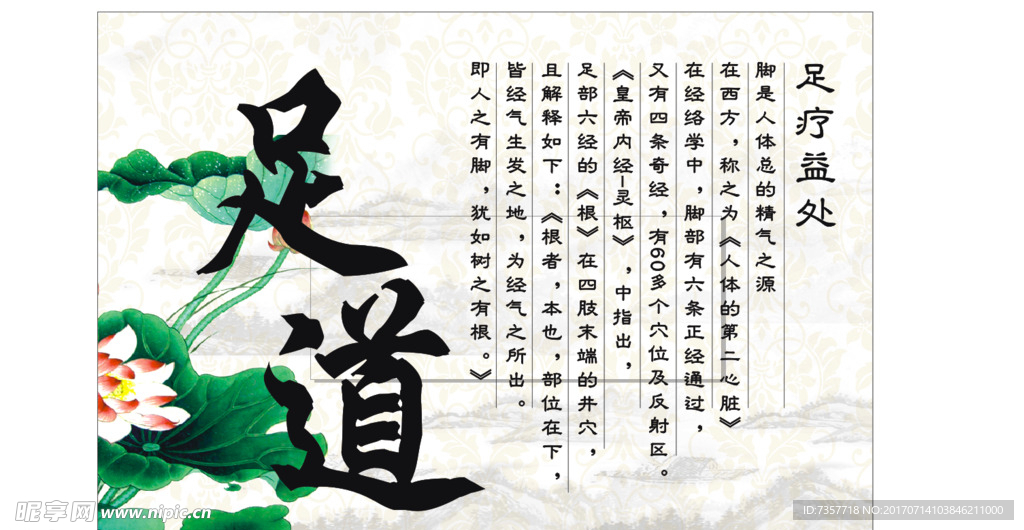 足疗益处
脚是人体总的精气之源
在西方，称之为《人体的第二心脏》
在经络学中，脚部有六条正经通过，
又有四条奇经，有60多个穴位及反射区。
《皇帝内经-灵枢》，中指出，
足部六经的《根》在四肢末端的井穴，
且解释如下：《根者，本也，部位在下，
皆经气生发之地，为经气之所出。
即人之有脚，犹如树之有根。》
足道
昵享网 www.nipic.cn
ID:7357718 NO:20170714103846211000